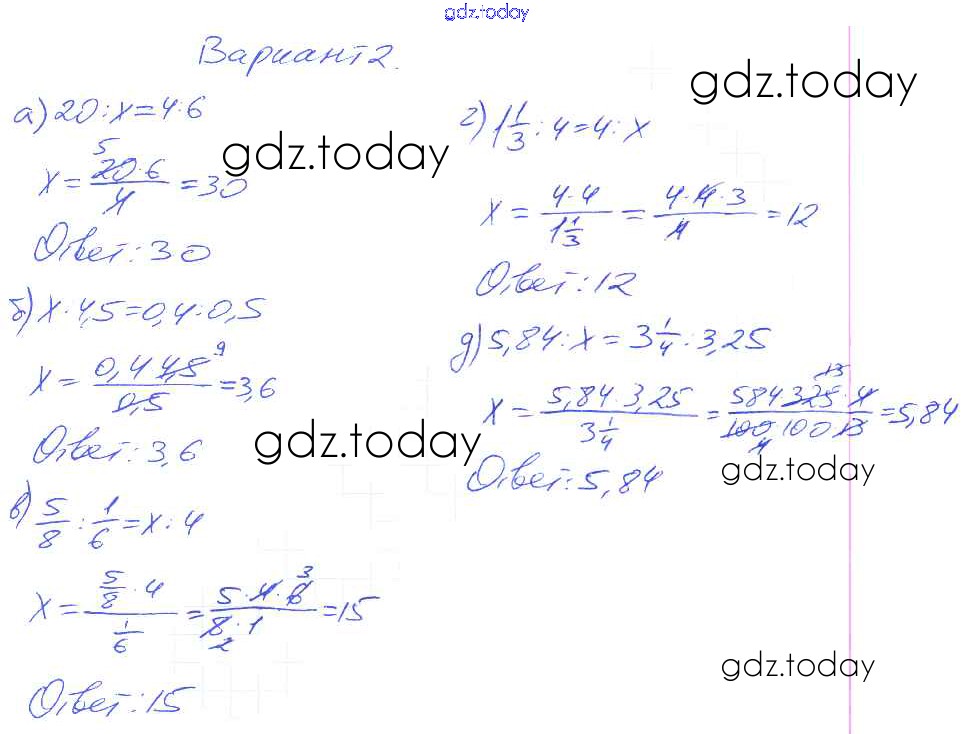 gdz.today
Вариант 2.
gdz.today
а) 20 : x = 4 : 6
x = 20·6/4 = 30
5
gdz.today
Ответ: 30
б) x : 4,5 = 0,4 : 0,5
x = 0,4·4,5/0,5 = 3,6
9
Ответ: 3,6
gdz.today
в) 5/8 : 1/6 = x : 4
x = (5/8 · 4)/(1/6) = 5·4·6/8·1 = 15
3
2
Ответ: 15
г) 1 1/3 : 4 = 4 : x
x = 4·4/(1 1/3) = 4·4·3/4 = 12
Ответ: 12
д) 5,84 : x = 3 1/4 : 3,25
x = 5,84·3,25/(3 1/4) = 584·325·4/100·100·13 = 5,84
13
4
Ответ: 5,84
gdz.today
gdz.today